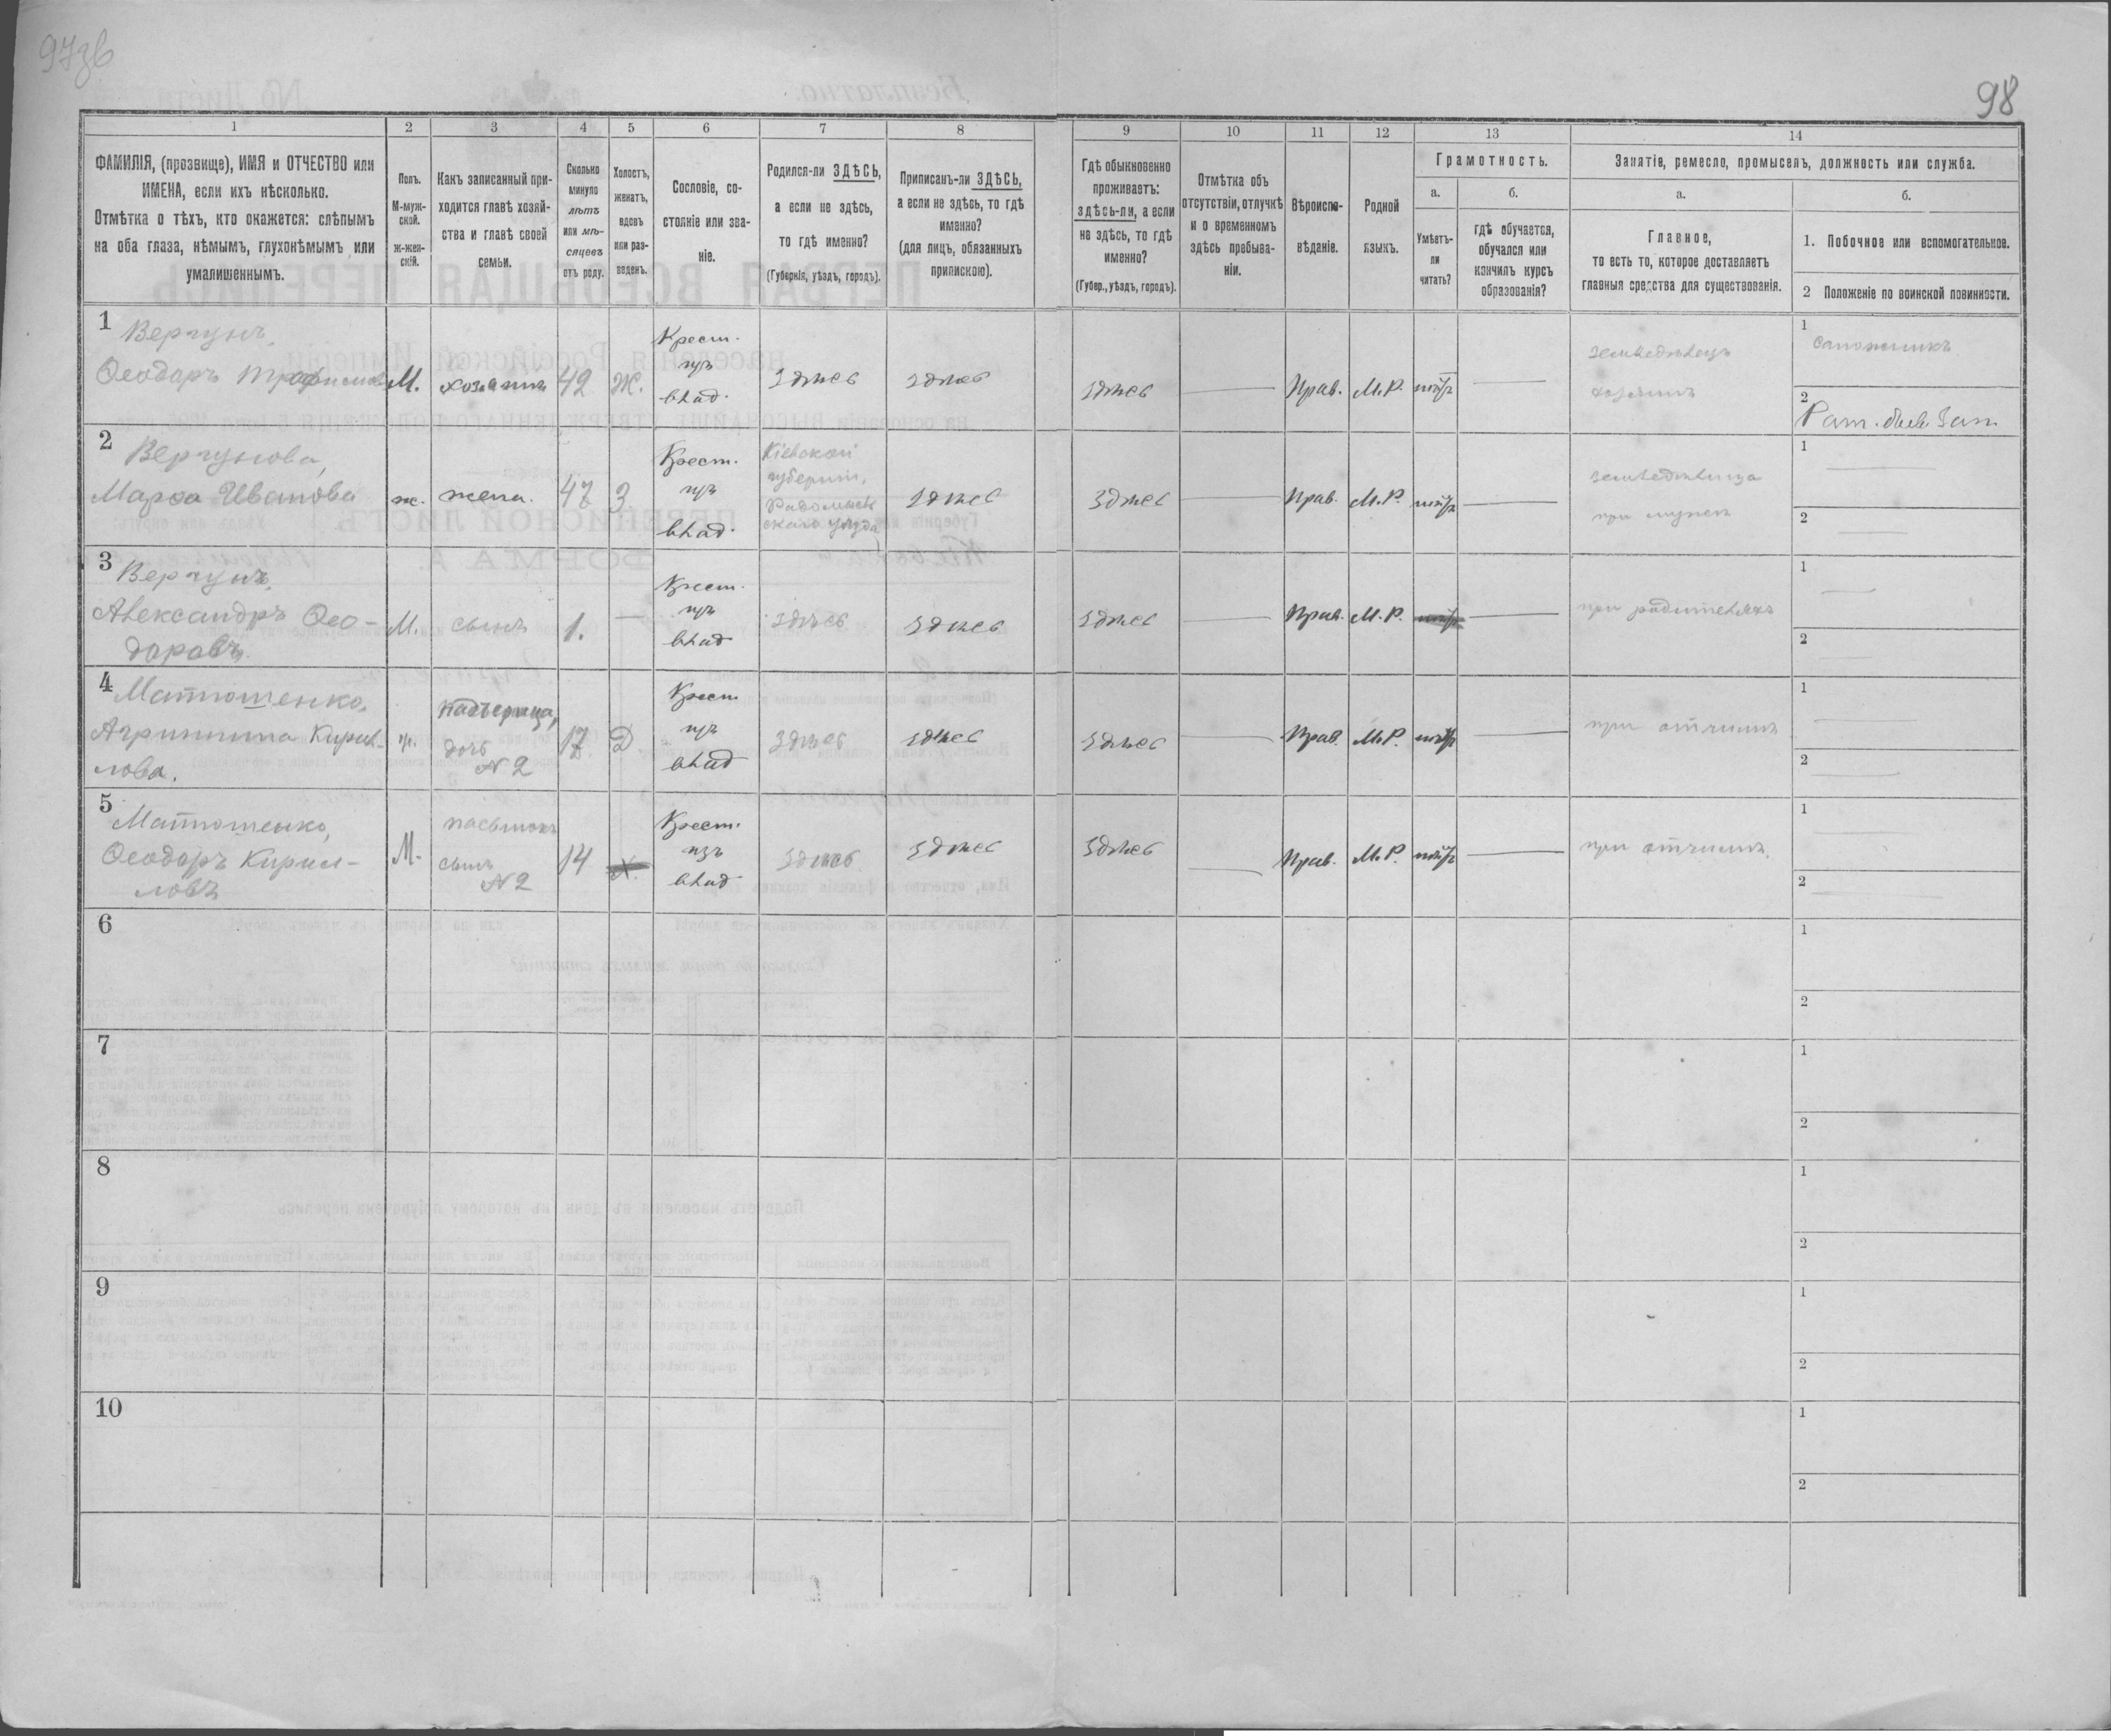 98
1 2 3 4 5 6 7 8 9 10 11 12 13 14
ФАМИЛІЯ, (прозвище), ИМЯ и ОТЧЕСТВО или
ИМЕНА, если ихъ нѣсколько.
Отмѣтка о тѣхъ, кто окажется: слѣпымъ
на оба глаза, нѣмымъ, глухонѣмымъ или
умалишеннымъ.
Полъ.
М-муж-
ской.
ж-жен-
скій.
Какъ записанный при-
ходится главѣ хозяй-
ства и главѣ своей
семьи.
Сколько
минуло
лѣтъ
или мѣ-
сяцевъ
отъ роду.
Холостъ,
женатъ,
вдовъ
или раз-
веденъ.
Сословіе, со-
стояніе или зва-
ніе.
Родился-ли ЗДѢСЬ,
а если не здѣсь,
то гдѣ именно?
(Губернія, уѣздъ, городъ).
Приписанъ-ли ЗДѢСЬ,
а если не здѣсь, то гдѣ
именно?
(для лицъ, обязанныхъ
припискою).
Гдѣ обыкновенно
проживаетъ:
здѣсь-ли, а если
не здѣсь, то гдѣ
именно?
(Губер., уѣздъ, городъ).
Отмѣтка объ
отсутствіи, отлучкѣ
и о временномъ
здѣсь пребыва-
ніи.
Вѣроиспо-
вѣданіе.
Родной
языкъ.
Грамотность.
а.
Умѣетъ-
ли
читать?
б.
гдѣ обучается,
обучался или
кончилъ курсъ
образованія?
Занятіе, ремесло, промыселъ, должность или служба.
а.
Главное,
то есть то, которое доставляетъ
главныя средства для существованія.
б.
1. Побочное или вспомогательное.
2 Положеніе по воинской повинности.
1
Вергунъ,
Ѳеодоръ Трофимовъ
М.
хозяинъ
42
Ж.
Крест.
изъ
влад.
здѣсь
здѣсь
здѣсь
Прав.
М.Р.
нѣтъ
земледѣлецъ
хозяинъ
1
сапожникъ
2
Рат.
2
Вергунова,
Марѳа Иванова
ж.
жена.
47
З
Крест.
изъ
влад.
Кіевской
губерніи,
Радомысль
скаго уѣзда
здѣсь
здѣсь
Прав.
М.Р.
нѣтъ
земледѣлица
при мужѣ
1
2
3
Вергунъ,
Александръ Ѳео-
доровъ
М.
сынъ
1.
Крест.
изъ
влад
здѣсь
здѣсь
здѣсь
Прав.
М.Р.
при родителяхъ
1
2
4
Матюшенко,
Агрипина Кирил-
лова.
ж.
Падчерица,
дочь
N 2
17
Д
Крест
изъ
влад
здѣсь
здѣсь
здѣсь
Прав.
М.Р.
нѣтъ
при отчимѣ
1
2
5
Матюшенко,
Ѳеодоръ Кирил-
ловъ
М.
пасынокъ
сынъ
N 2
14
Х.
Крест.
изъ
влад
здѣсь
здѣсь
здѣсь
Прав.
М.Р.
нѣтъ
при отчимѣ
1
2
6
1
2
7
1
2
8
1
2
9
1
2
10
1
2